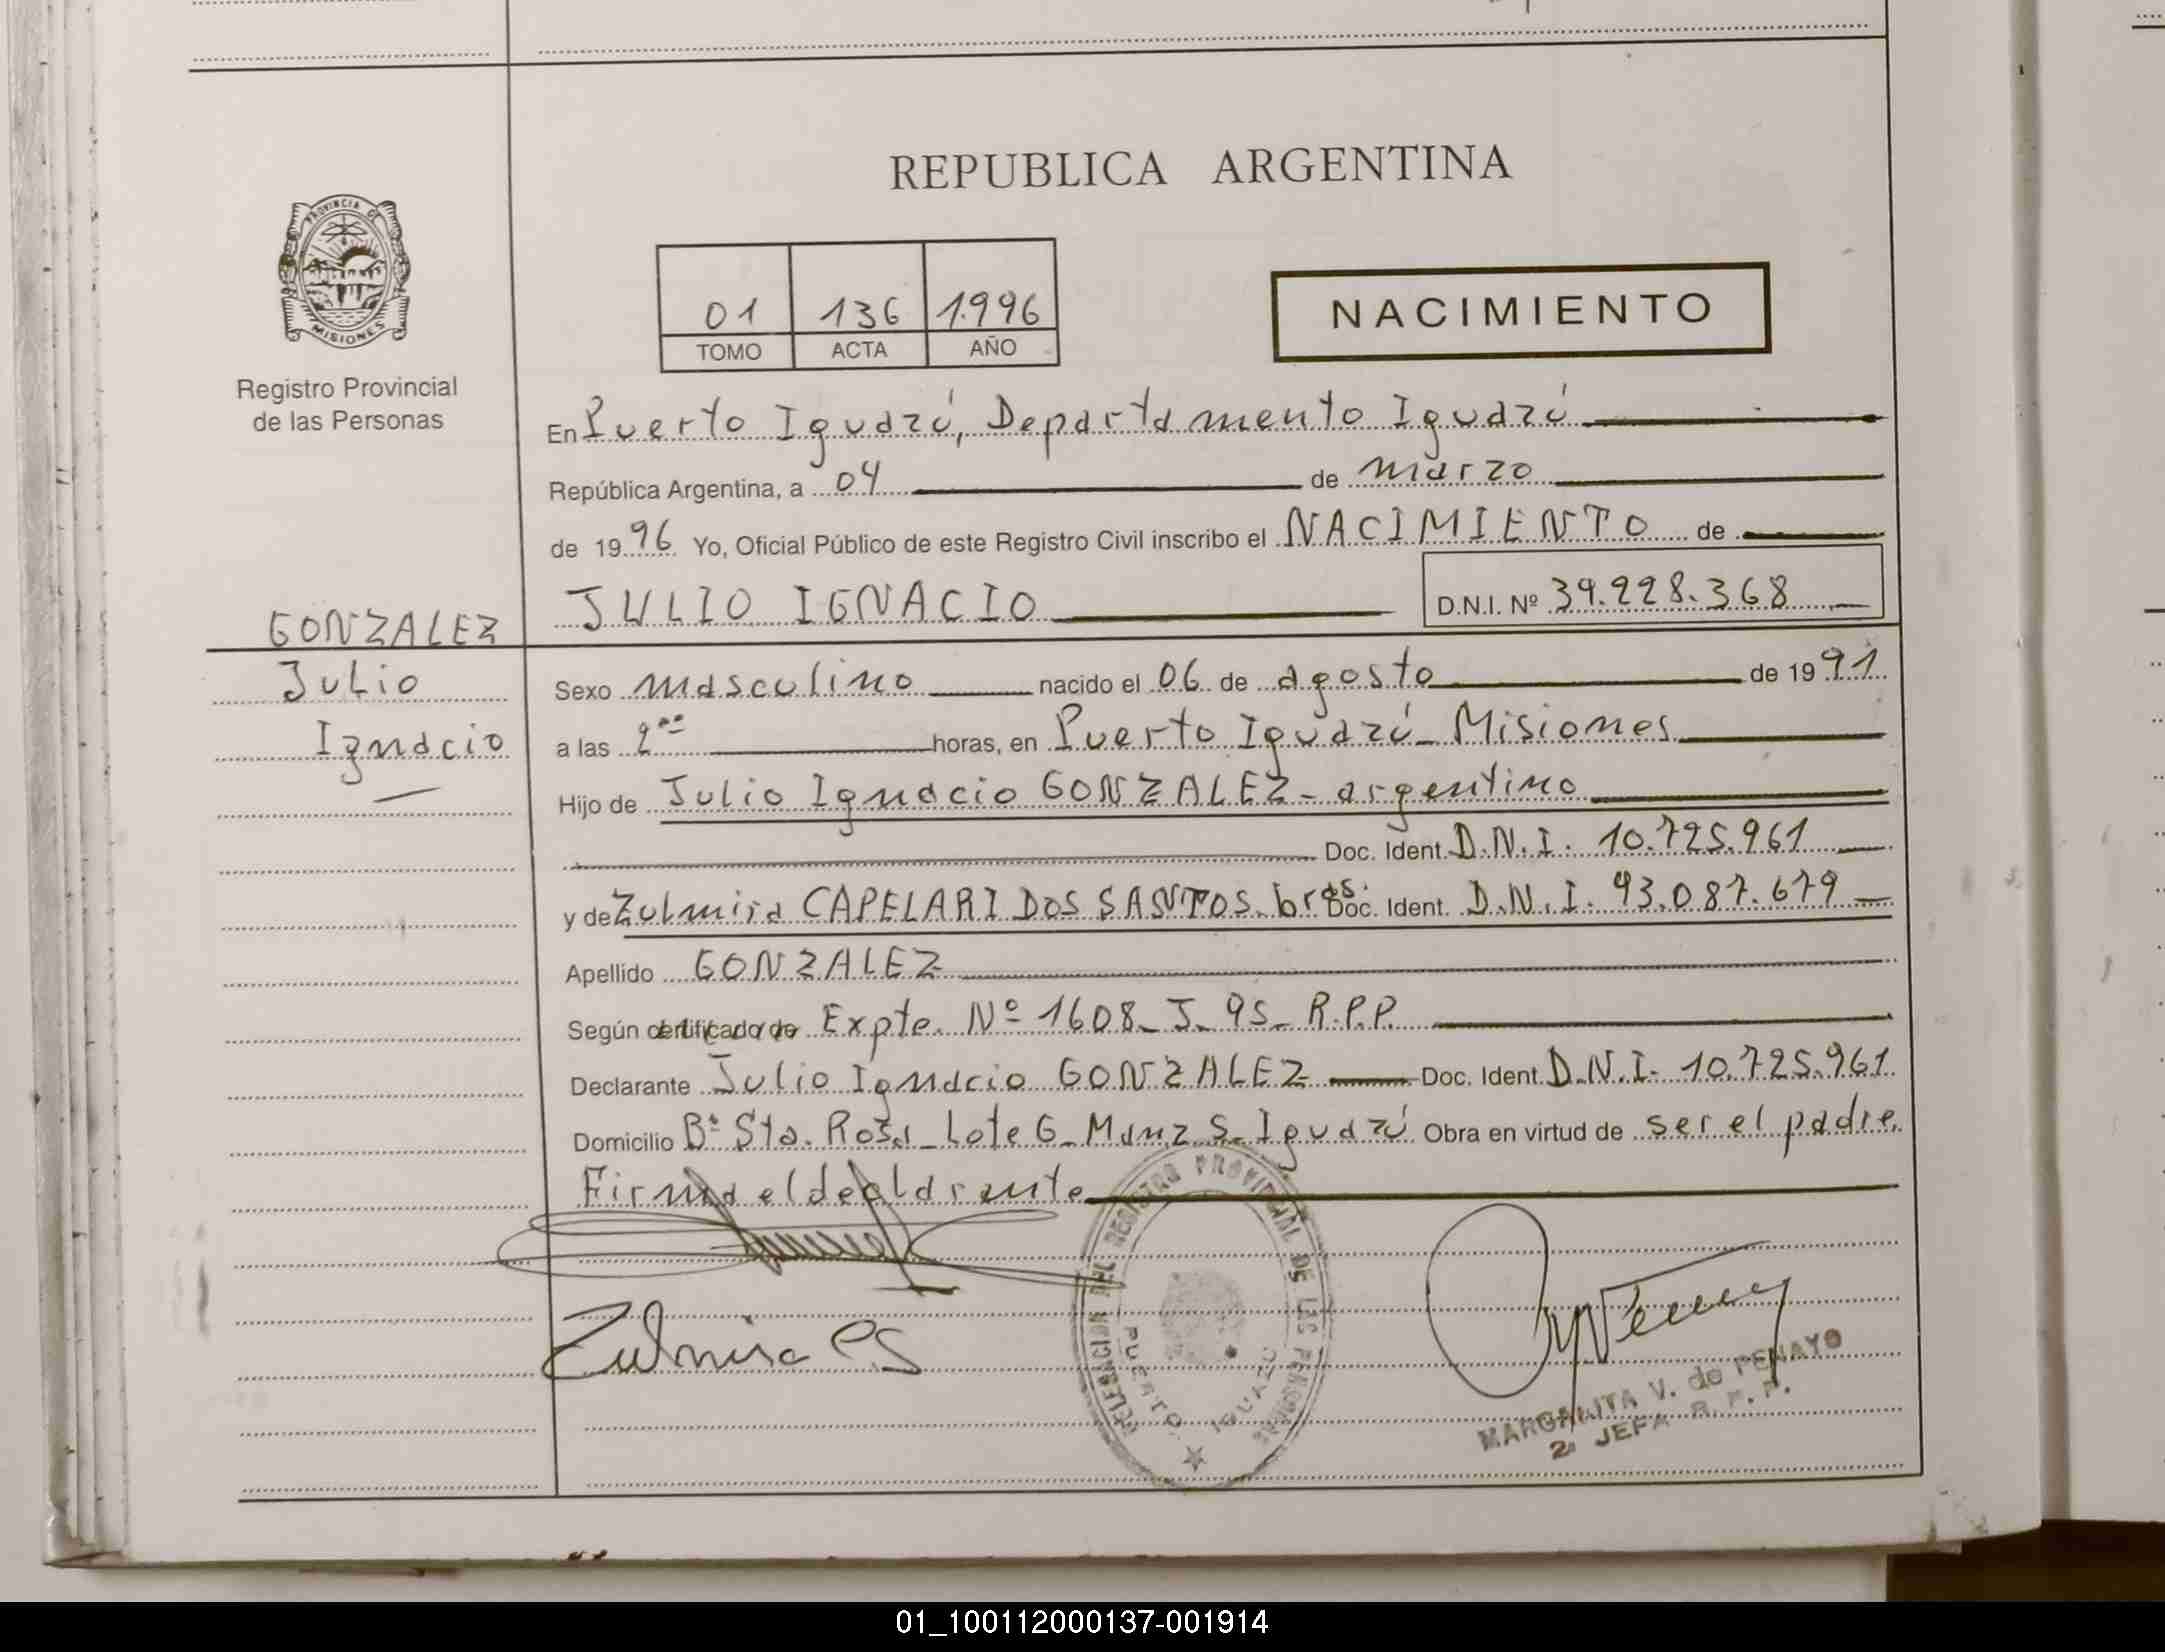 REPUBLICA ARGENTINA
PROVINCIA DE
MISIONES
Registro Provincial
de las Personas
01 136 1996
TOMO ACTA AÑO
NACIMIENTO
En Puerto Iguazú, Departamento Iguazú
República Argentina, a 04 de marzo
de 1996 Yo, Oficial Público de este Registro Civil inscribo el NACIMIENTO de
JULIO IGNACIO D.N.I. Nº 39.228.368
GONZALEZ
Julio
Ignacio
Sexo masculino nacido el 06 de agosto de 1991
a las 2⁰⁰ horas, en Puerto Iguazú - Misiones
Hijo de Julio Ignacio GONZALEZ - argentino
Doc. Ident. D.N.I. 10.725.961
y de Zulmira CAPELARI DOS SANTOS. bras. Doc. Ident. D.N.I. 93.087.679
Apellido GONZALEZ
Según certificado de Expte. Nº 1608 - J - 95 - R.P.P.
Declarante Julio Ignacio GONZALEZ Doc. Ident. D.N.I. 10.725.961
Domicilio Bº Sta. Rosa - Lote 6 - Manz 5 - Iguazú Obra en virtud de ser el padre.
Firma el declarante
DELEGACION DEL REGISTRO PROVINCIAL DE LAS PERSONAS
PUERTO IGUAZU
Zulmira CS
MARGARITA V. de PENAYO
2ª JEFA R. P. P.
01_100112000137-001914